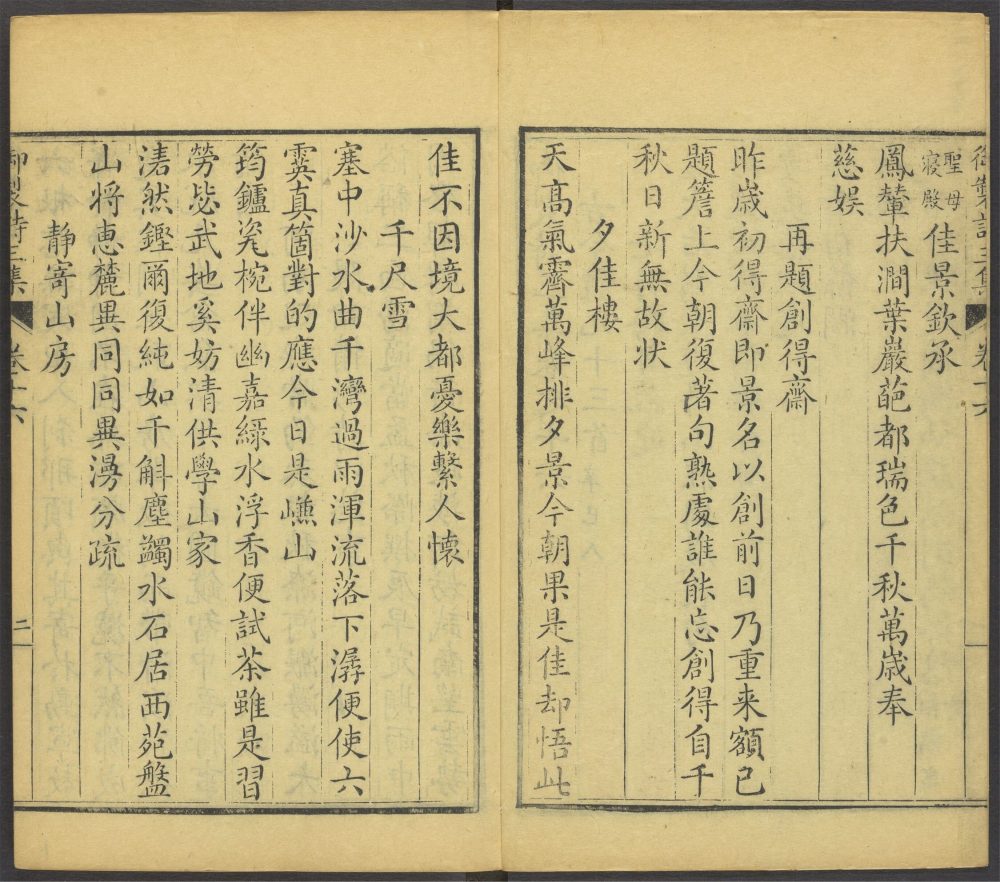 聖母
寢殿
佳景欽承
鳳輦扶澗葉巖葩都瑞色千秋萬歲奉
慈娛
再題創得齋
昨歲初得齋即景名以創前日乃重来額已
題簷上今朝復著句熟處誰能忘創得自千
秋日新無故状
夕佳樓
天高氣霽萬峰排夕景今朝果是佳却悟此
佳不因境大都憂樂繫人懷
千尺雪
塞中沙水曲千灣過雨渾流落下潺便使六
霙真箇對的應今日是嶕山
筠鑪瓷椀伴幽嘉綠水浮香便試茶雖是習
勞毖武地奚妨清供學山家
濤然鏗爾復純如千斛塵蠲水石居西苑盤
山將恵麓異同同異漫分疏
靜寄山房
御製詩三集
卷十六
二